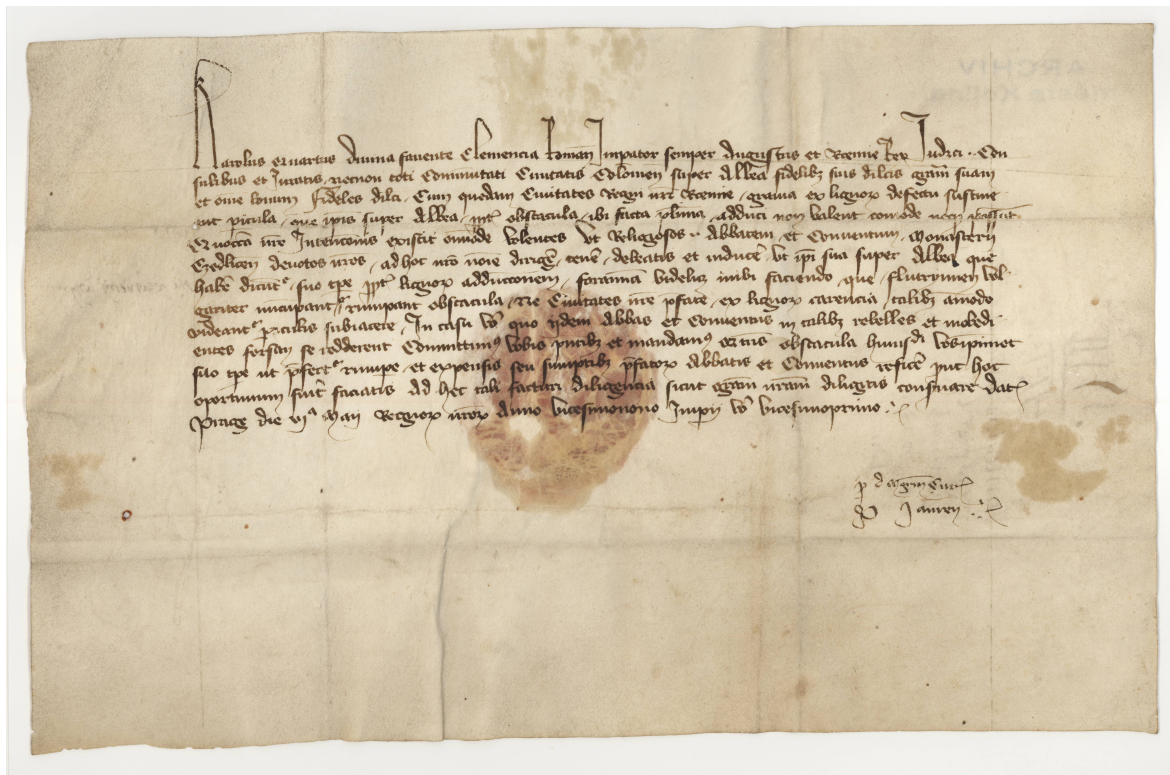 Karolus quartus divina favente clemencia Roman Imperator semper Augustus et Boemie Rex Judici Con
sulibus et Juratis, necnon toti Communitati Civitatis Colonien super Albea fidelibz suis dilcis gram suam
et omne bonum Fideles dilci, Cum quedam Civitates Regni nri Boemie, gravia ex lignorz defectu sustine
ant picula, que ipis super Albea, obstacula, ibi facta plima, adduci non valent comode
nre Intencionis existit omode volentes ut Religiosos Abbatem et Conventum Monasterii
Czedlicen devotos nros, ad hoc nro noie dirigere, tenere, et inducere ut ipi sua super Albea que
habere dicunt, suo tpe, ppt lignorz adduccionem, foramina videlicz inibi faciendo, que, flutrynnen vul
gariter nuncupant, rumpant obstacula, Ne Civitates nre pfate, ex lignorz carencia, talibz amodo
videant piculis subiacere, In casu vo quo ijdem Abbas et Conventus in talibz rebelles et inobedi
entes forsan se redderent Committimus vobis pntibz et mandamus obstacula huiusdi vosipimet
suo tpe ut pfert rumpere, et expensis seu sumptibz pfatorz Abbatis et Conventus reficere put hoc
oportunum fuerit faciatis Ad hec tali facturi diligencia sicut gram nram diligitis conservare Dat
Prage die vi Maii Regnorz nrorz Anno vicesimonono Imperii vo vicesimoprimo
p d magrm Curie
Jauren
ARCHIV